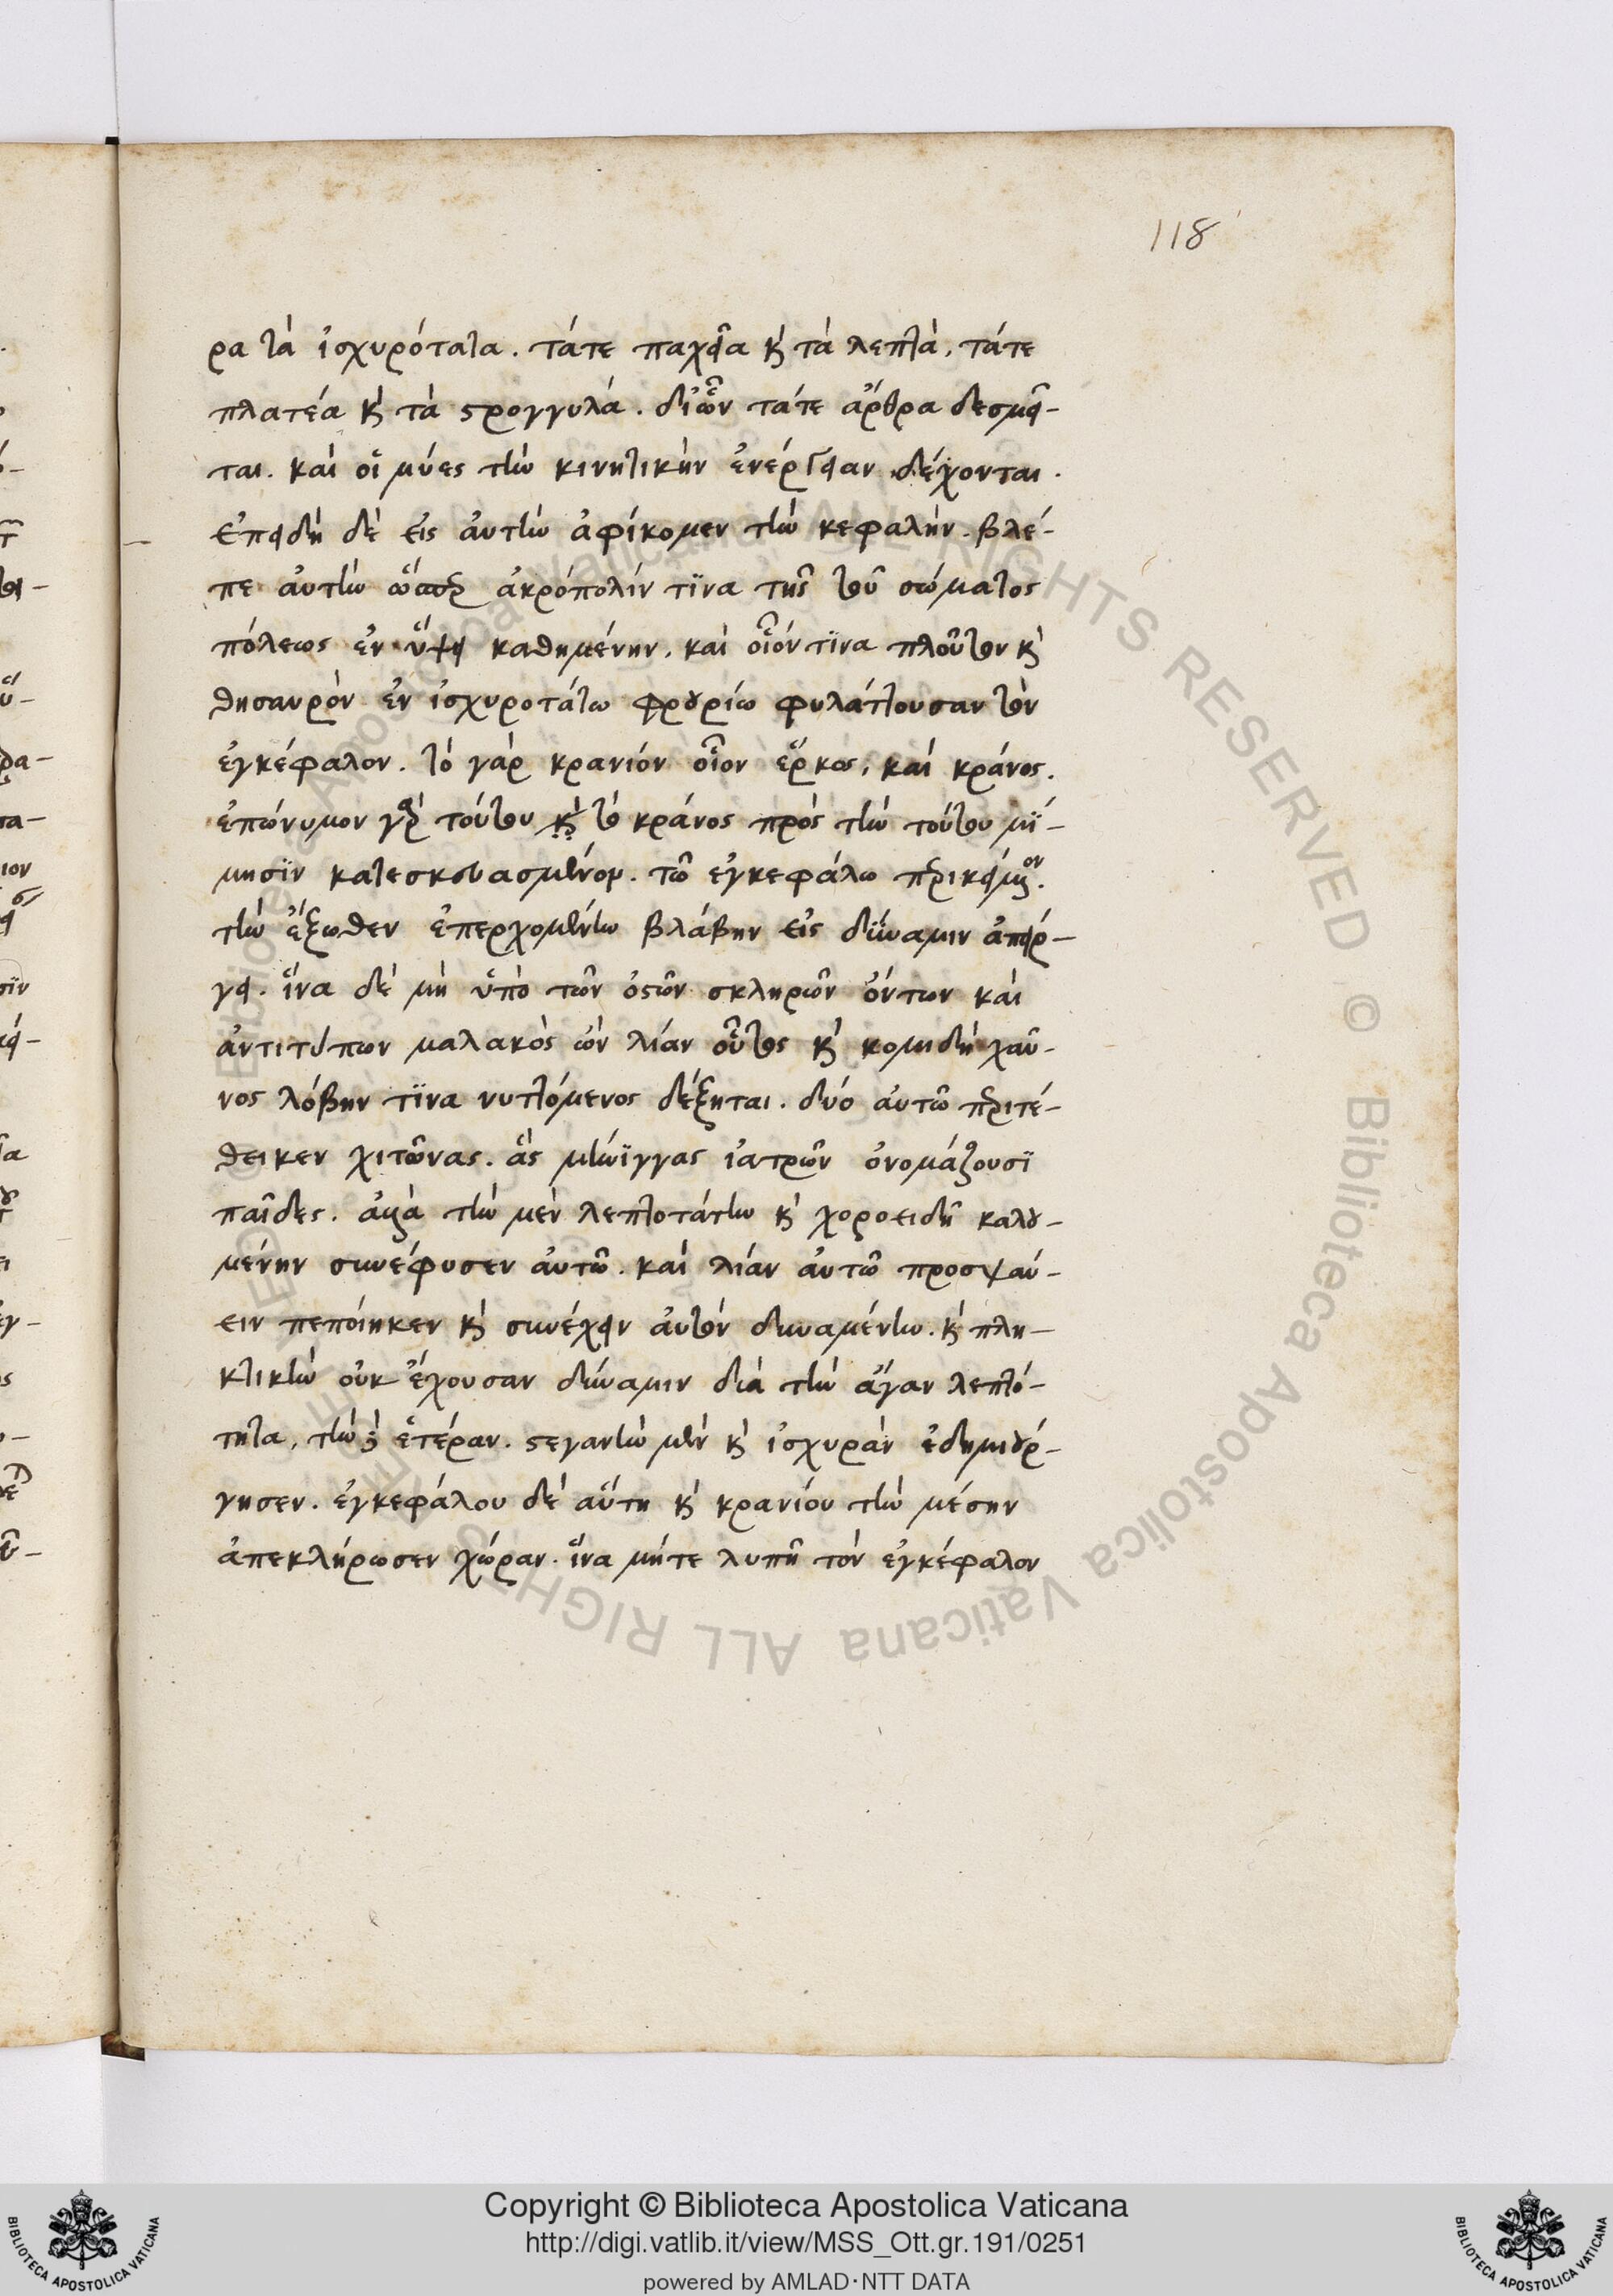 118
ρα τὰ ἰσχυρότατα. τάτε παχεῖα κ̀ τὰ λεπτὰ, τάτε
πλατέα κ̀ τὰ ϛρογγυλά. διὧν τάτε ἄρθρα δεσμεῖ-
ται. καὶ οἵ μύες τὴν κινητικὴν ἐνέργειαν δέχονται.
ἐπειδὴ δὲ εἰς ἀυτὴν ἀφίκομεν τὴν κεφαλὴν. βλέ-
πε ἀυτὴν ὥσπερ ἀκρόπολίν τϊνα τῆς τοῦ σώματος
πόλεως ἐν ὕψει καθημένην. καὶ οἷόν τϊνα πλοῦτον κ̀
θησαυρὸν ἐν ἰσχυροτάτω φρουρίω φυλάττουσαν τὸν
ἐγκέφαλον. τὸ γὰρ κρανιόν οἷον ἕρκος, καὶ κράνος.
ἐπώνυμον γὰρ τούτου κ̀ τὸ κράνος πρὸς τὴν τούτου μΐ-
μησϊν κατεσκευασμένον. τῶ ἐγκεφάλω περικείμενον.
τὴν ἔξωθεν ἐπερχομένην βλάβην εἰς δύναμιν ἀπείρ-
γει. ἵνα δὲ μὴ ὑπὸ τῶν ὀϛῶν σκληρῶν ὄντων καὶ
ἀντιτύπων μαλακὸς ὢν λίαν οὗτος κ̀ κομιδῆ χαῦ-
νος λόβην τϊνα νυττόμενος δέξηται. δύο ἀυτῶ περιτέ-
θεικεν χιτῶνας. ἃς μήνϊγγας ἰατρῶν ὀνομάζουσϊ
παῖδες. ἀλλὰ τὴν μὲν λεπτοτάτην κ̀ χοροειδῆ καλου-
μένην συνέφυσεν ἀυτῶ. καὶ λίαν ἀυτῶ προσψαύ-
ειν πεποίηκεν κ̀ συνέχειν ἀυτὸν δυναμένην. κ̀ πλη-
κτικὴν οὐκ ἔχουσαν δύναμιν διὰ τὴν ἄγαν λεπτό-
τητα, τὴν δὲ ἑτέραν. ϛεγανὴν μὲν κ̀ ἰσχυρὰν ἐδημιούρ-
γησεν. ἐγκεφάλου δὲ αὕτη κ̀ κρανίου τὴν μέσην
ἀπεκλήρωσεν χώραν. ἵνα μήτε λυπῆ τὸν ἐγκέφαλον
Copyright © Biblioteca Apostolica Vaticana
http://digi.vatlib.it/view/MSS_Ott.gr.191/0251
powered by AMLAD·NTT DATA